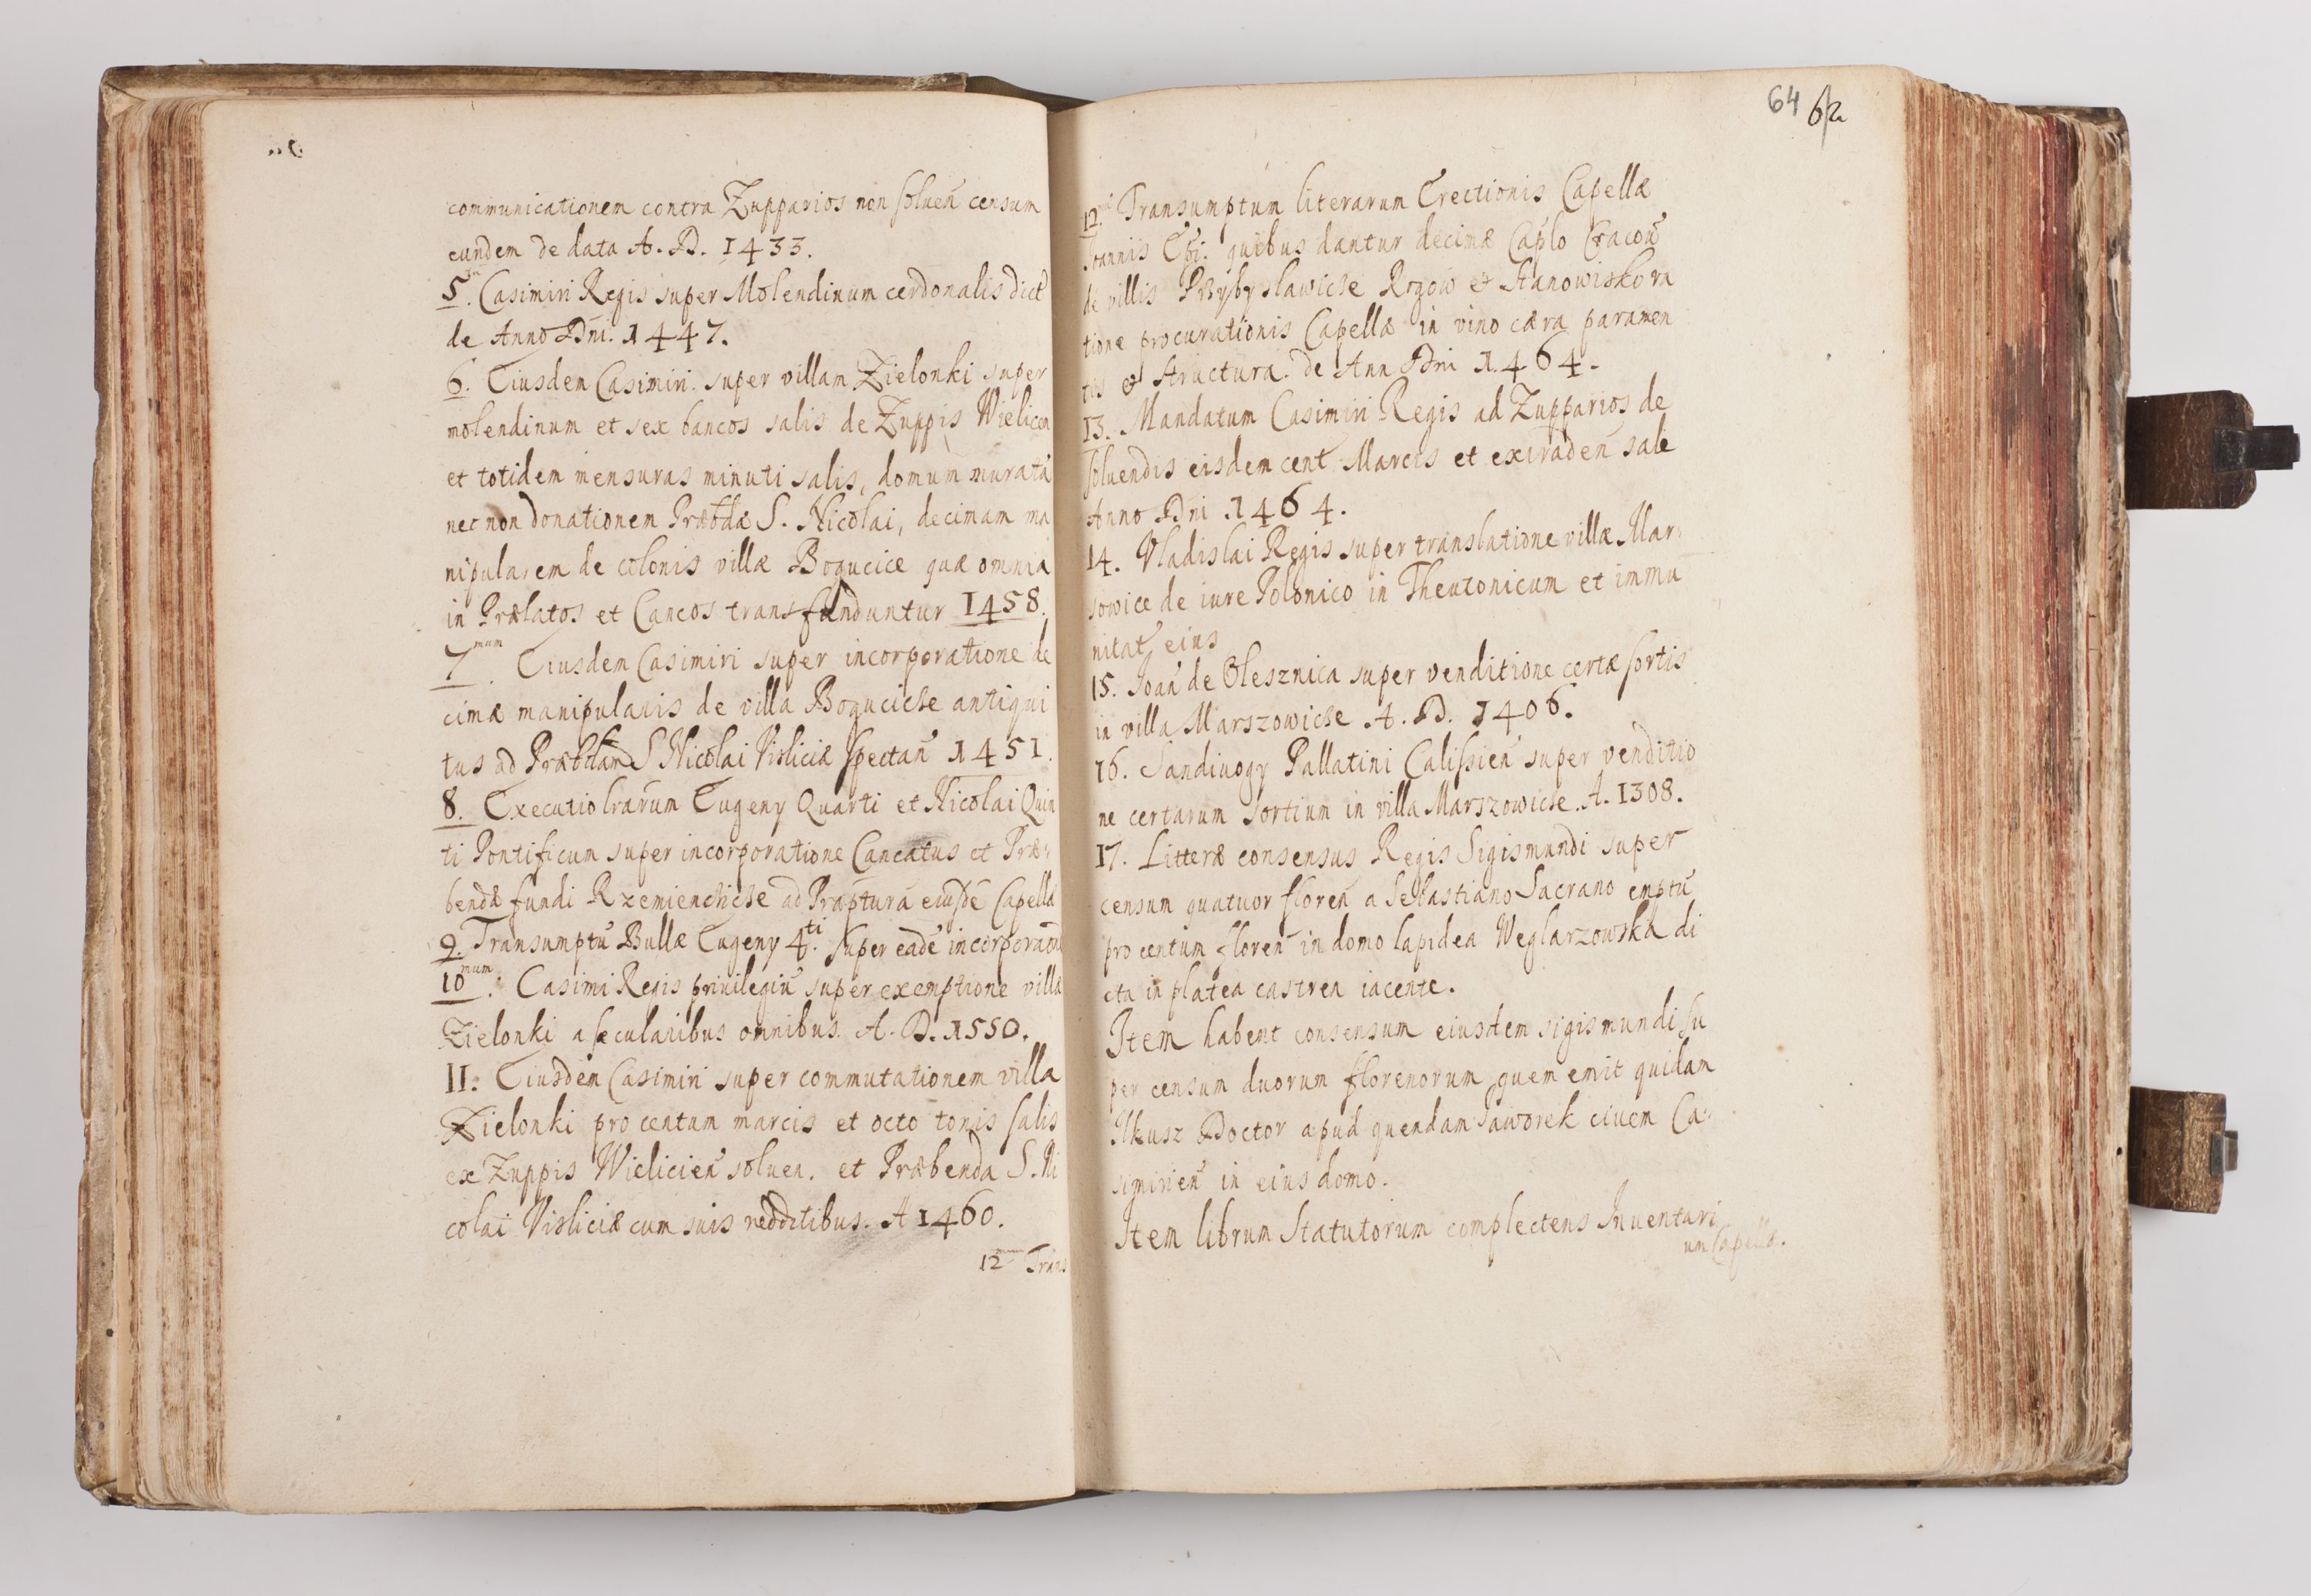 communicationem contra Zupparios non soluen̄ censum
eundem de data A. D. 1433.
5. Casimiri Regis super Molendinum cerdonalis dict
de Anno Dni. 1447.
6. Eiusdem Casimiri. super villam Zielonki super
molendinum et sex bancos salis de Zuppis Wielicen
et totidem mensuras minuti salis, domum muratā
nec non donationem Præbdæ S. Nicolai, decimam ma
nipularem de colonis villæ Bogucice quæ omnia
in Prælatos et Cancos transfunduntur 1458.
7mum. Eiusdem Casimiri super incorporatione de
cimæ manipularis de villa Bogucicze antiqui
tus ad Præbdam S Nicolai Visliciæ spectan̄ 1451.
8. Executio lrarum Eugeny Quarti et Nicolai Quin
ti Pontificum super incorporatione Cancatus et Præ
bendæ fundi Rzemienczicze ad Præpturā eiusdē Capellæ
9. Transumptū Bullæ Eugeny 4ti. super eadē incorporaōn
10mum: Casimi Regis priuilegiū super exemptione villæ
Zielonki a sæcularibus omnibus. A. D. 1550.
11. Eiusdem Casimiri super commutationem villa
Zielonki pro centum marcis et octo tonis salis
ex Zuppis Wielicien̄ soluen. et Præbenda S. Ni
colai Visliciæ cum suis redditibus. A 1460.
12mum Trans
64 62
12. Transumptum literarum Erectionis Capellæ
quibus dantur decimæ Caplo Cracou̅
de villis Przybyslawicze Rogow et Stanowisko ra
tione procurationis Capellæ in vino cæra paramen
tis et structura. de Ann Dni 1464.
13. Mandatum Casimiri Regis ad Zupparios de
soluendis eisdem cent Marcis et extraden̄ sale
Anno Dni .1464.
14. Vladislai Regis super translatione villæ Mar
sowice de iure Polonico in Theutonicum et immu
nitat eius
15. Joan̄ de Olesznica super venditione certæ sortis
in villa Marszowicze A. D. 1406.
16. Sandiuogy Pallatini Calissien̄ super venditio
ne certarum sortium in villa Marszowicze. A. 1308.
17. Litteræ consensus Regis Sigismundi super
censum quatuor floren̄ a Sebastiano Sacrano emptū
pro centum floren̄ in domo lapidea Weglarzowska di
cta in platea castren iacente.
Item habent consensum eiusdem sigismundi su
per censum duorum florenorum quem emit quidam
Ilkusz Doctor apud quendam Jaworek ciuem Ca
simirien̄ in eius domo.
Item librum Statutorum complectens Inuentari
um Capellæ.